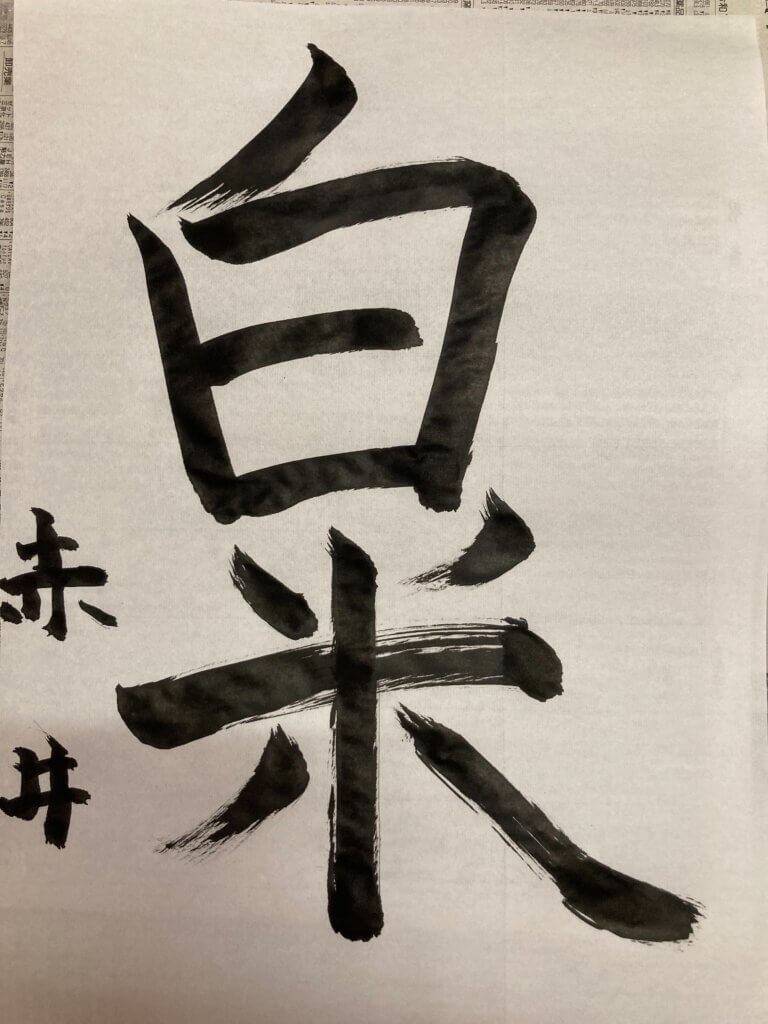 白米
赤井